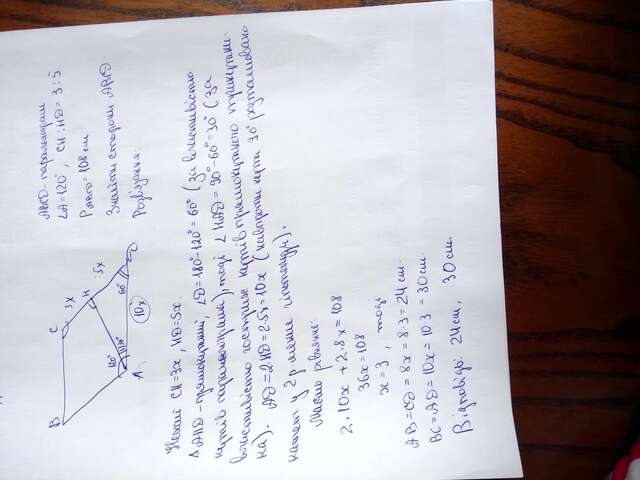 ABCD - паралелограм
∠A=120°, CH:HD=3:5
P ABCD = 108 см
Знайти сторони ABCD
Розв'язання:
B
C
3x
H
5x
120°
60°
A
10x
D
Нехай CH=3x, HD=5x.
△AHD - прямокутний, ∠D=180°-120°=60° (за властивістю
кутів паралелограма), тоді ∠HAD=90°-60°=30° (за
властивістю гострих кутів прямокутного трикутни-
ка). AD=2HD=2·5x=10x (навпроти кута 30° розташовано
катет у 2р менше гіпотенузи).
Маємо рівняння:
2·10x+2·8x=108
36x=108
x=3, тоді
AB=CD=8x=8·3=24см.
BC=AD=10x=10·3=30см.
Відповідь: 24см, 30см.